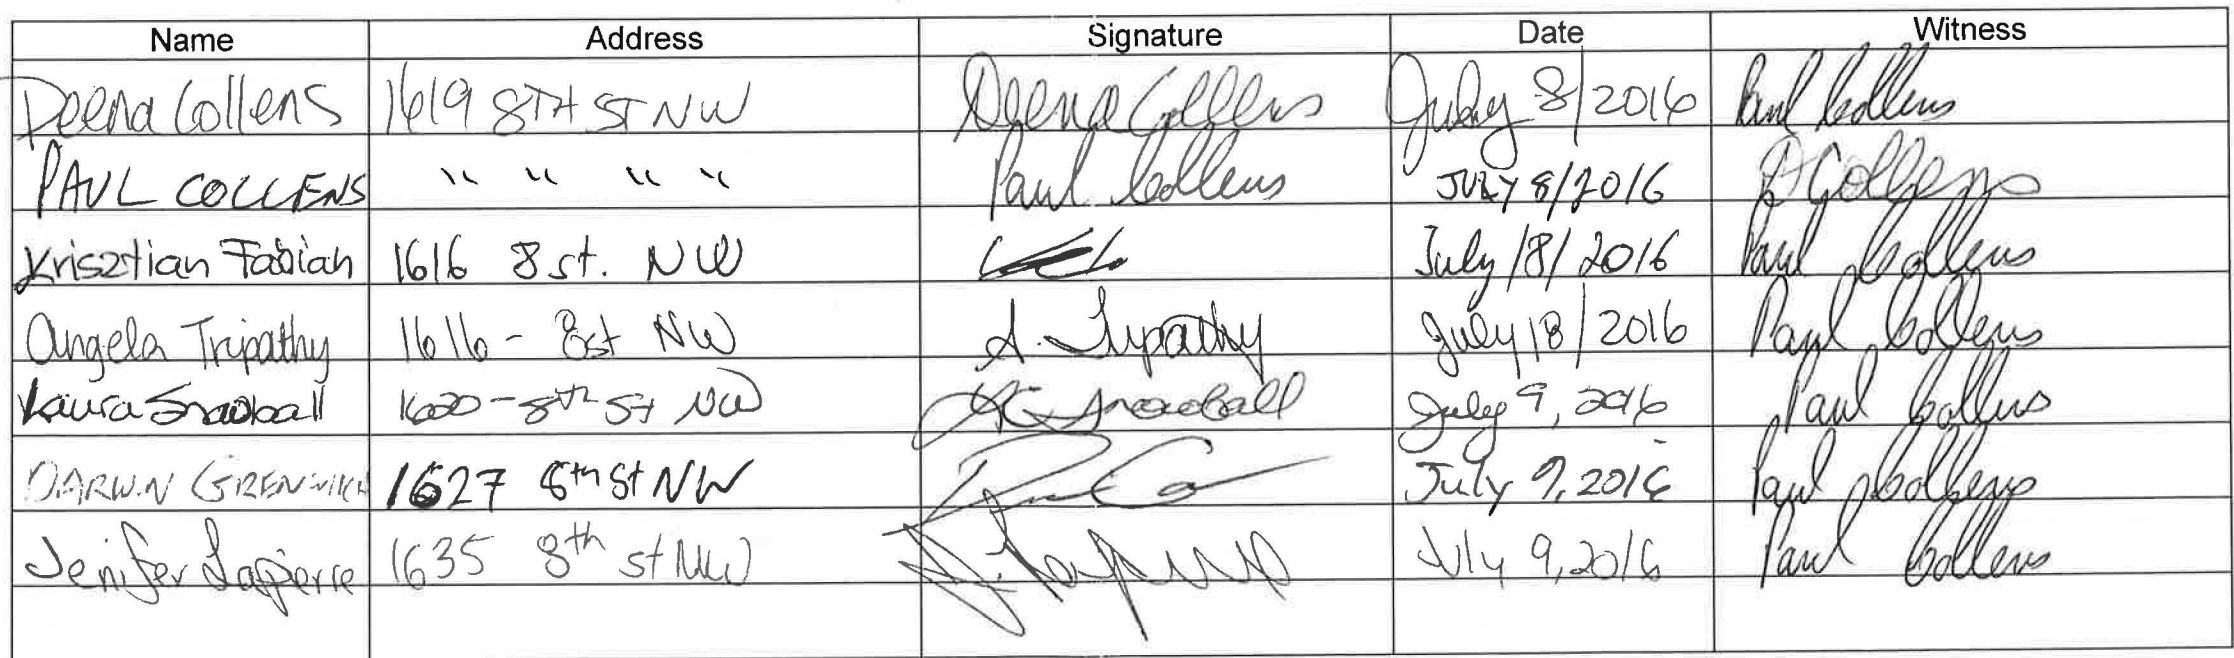 Name Address Signature Date Witness
Deena Collens 1619 8TH ST NW Deena Collens July 8/2016 Paul Collens
PAUL COLLENS " " " " Paul Collens JULY 8/2016 D Collens
Krisztian Fabian 1616 8 st. NW July /8/ 2016 Paul Collens
Angela Tripathy 1616 - 8st NW A. Tripathy July /8/2016 Paul Collens
Laura Snowball 1620 - 8th St NW Snowball July 9, 2016 Paul Collens
DARWIN 1627 8th St NW July 9, 2016 Paul Collens
Jenifer Lapierre 1635 8th st NW J. Lapierre July 9, 2016 Paul Collens